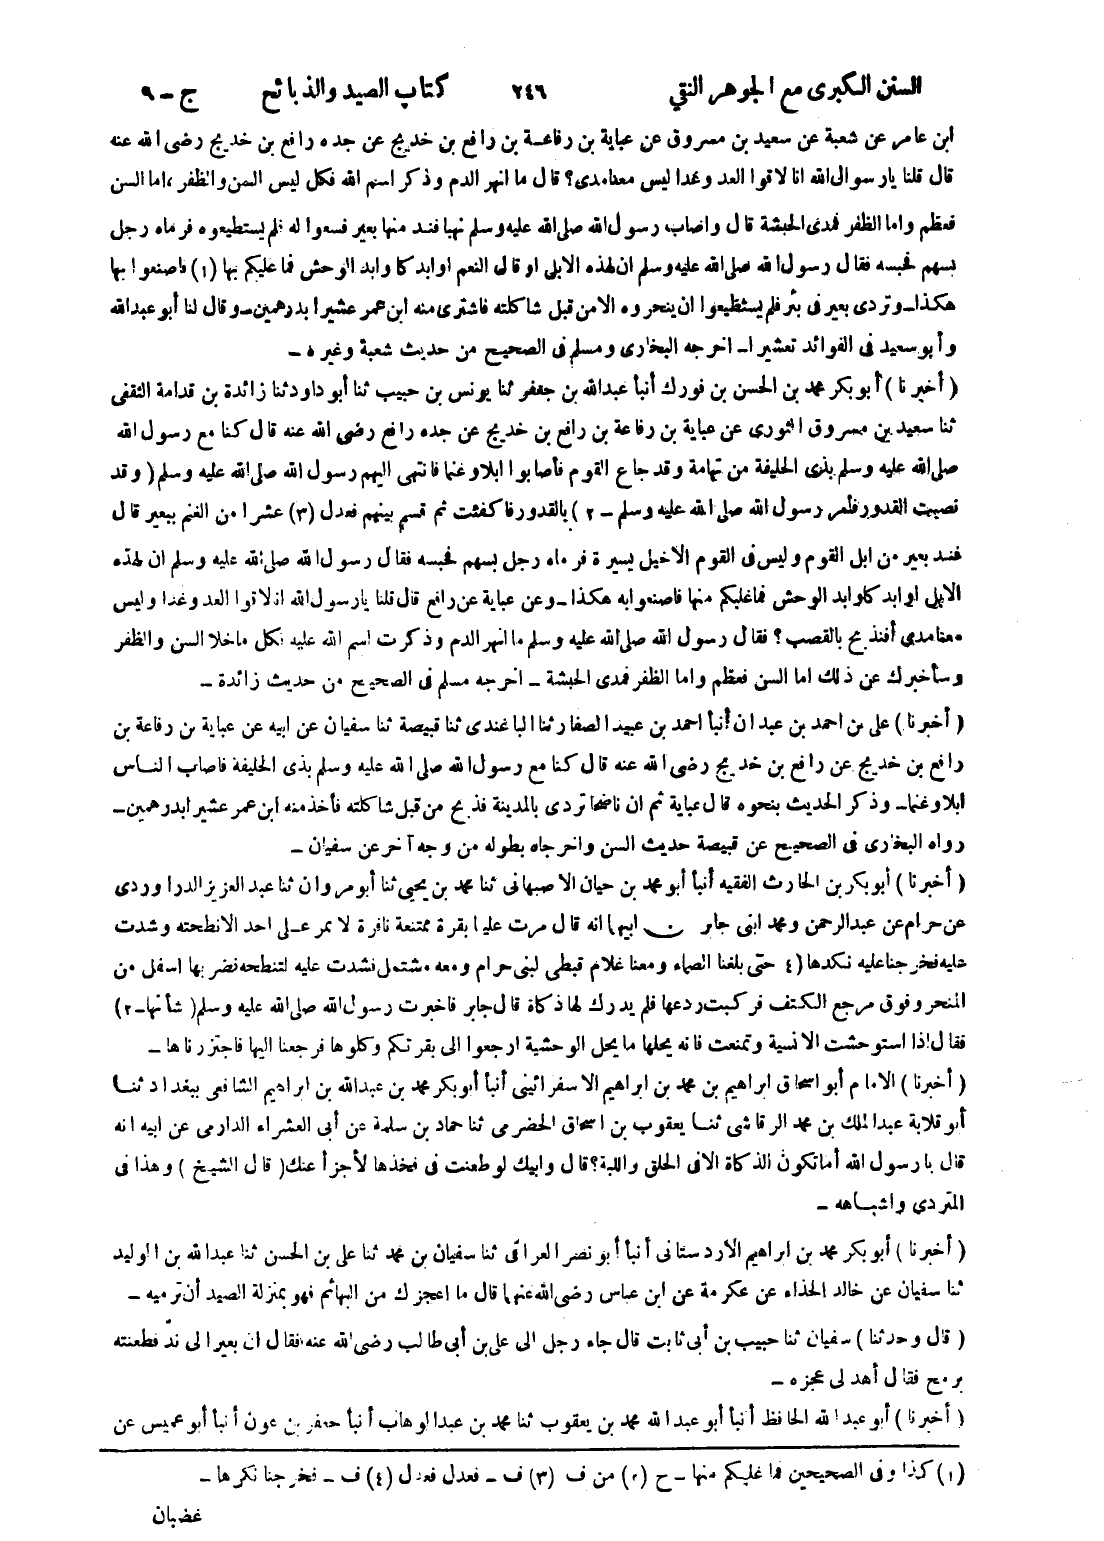 السنن الكبرى مع الجوهر النقي ٢٤٦ كتاب الصيد والذبائح ج - ٩
ابن عامر عن شعبة عن سعيد بن مسروق عن عباية بن رفاعة بن رافع بن خديج عن جده رافع بن خديج رضى الله عنه
قال قلنا يارسوال الله انا لاقوا العد وغدا ليس معنامدى؟ قال ما انهر الدم وذكر اسم الله فكل ليس السن والظفر ،اما السن
فعظم واما الظفر فمدى الحبشة قال واصاب رسول الله صلى الله عليه وسلم نهبا فند منها بعير فسعوا له فلم يستطيعوه فرماه رجل
بسهم فحبسه فقال رسول الله صلى الله عليه وسلم ان لهذه الابل او قال النعم اوابد كاوابد الوحش فما غلبكم بها (١) فاصنعوا بها
هكذا ــ وتردى بعير فى بئر فلم يستظيعوا ان ينحروه الامن قبل شاكلته فاشترى منه ابن عمر عشيرا بدرهمين ــ وقال لنا أبو عبدالله
وأبو سعيد فى الفوائد تعشيرا ــ اخرجه البخارى ومسلم فى الصحيح من حديث شعبة وغيره ــ
( أخبرنا ) أبو بكر محمد بن الحسن بن فورك أنبأ عبدالله بن جعفر ثنا يونس بن حبيب ثنا أبو داود ثنا زائدة بن قدامة الثقفى
ثنا سعيد بن مسروق الثورى عن عباية بن رفاعة بن رافع بن خديج عن جده رافع رضى الله عنه قال كنا مع رسول الله
صلى الله عليه وسلم بذى الحليفة من تهامة وقد جاع القوم فأصابوا ابلا وغنما فانتهى اليهم رسول الله صلى الله عليه وسلم ( وقد
نصبت القدور فأمر رسول الله صلى الله عليه وسلم ــ ٢ ) بالقدور فاكفئت ثم قسم بينهم فعدل (٣) عشرا من الغنم ببعير قال
فند بعير من ابل القوم وليس فى القوم الاخيل يسيرة فرماه رجل بسهم فحبسه فقال رسول الله صلى الله عليه وسلم ان لهذه
الابل اوابد كاوابد الوحش فماغلبكم منها فاصنعوابه هكذا ــ وعن عباية عن رافع قال قلنا يارسول الله انالاقوا العد وغدا وليس
معنامدى أفنذبح بالقصب ؟ فقال رسول الله صلى الله عليه وسلم ما انهر الدم وذكرت اسم الله عليه فكل ماخلا السن والظفر
وسأخبرك عن ذلك اما السن فعظم واما الظفر فمدى الحبشة ــ اخرجه مسلم فى الصحيح من حديث زائدة ــ
( أخبرنا ) على بن احمد بن عبدان أنبأ احمد بن عبيد الصفار ثنا الباغندى ثنا قبيصة ثنا سفيان عن ابيه عن عباية بن رفاعة بن
رافع بن خديج عن رافع بن خديج رضى الله عنه قال كنا مع رسول الله صلى الله عليه وسلم بذى الحليفة فاصاب الناس
ابلا وغنما ــ وذكر الحديث بنحوه قال عباية ثم ان ناضحا تردى بالمدينة فذبح من قبل شاكلته فأخذ منه ابن عمر عشيرا بدرهمين ــ
رواه البخارى فى الصحيح عن قبيصة حديث السن واخرجاه بطوله من وجه آخر عن سفيان ــ
( أخبرنا ) أبو بكر بن الحارث الفقيه أنبأ أبو محمد بن حيان الاصبهانى ثنا محمد بن يحيى ثنا أبو مروان ثنا عبد العزيز الدراوردى
عن حرام عن عبدالرحمن ومحمد ابنى جابر عن ابيهما انه قال مرت علينا بقرة ممتنعة نافرة لا تمر على احد الانطحته وشدت
عليه فخرجنا عليه نكدها (٤ حتى بلغنا الصماء ومعنا غلام قبطى لبنى حرام ومعه مشتمل فشدت عليه لتنطحه فضربها اسفل من
المنحر وفوق مرجع الكتف فركبت ردعها فلم يدرك لها ذكاة قال جابر فاخبرت رسول الله صلى الله عليه وسلم ( شأنها ــ ٢ )
فقال اذا استوحشت الانسية وتمنعت فانه يحلها مايحل الوحشية ارجعوا الى بقرتكم وكلوها فرجعنا اليها فاجتزرناها ــ
( أخبرنا ) الامام أبو اسحاق ابراهيم بن محمد بن ابراهيم الاسفرائينى أنبأ أبو بكر محمد بن عبدالله بن ابراهيم الشافعى ببغداد ثنا
أبو قلابة عبدالملك بن محمد الرقاشى ثنا يعقوب بن اسحاق الحضرمى ثنا حماد بن سلمة عن أبى العشراء الدارمى عن ابيه انه
قال يارسول الله أماتكون الذكاة الافى الحلق واللبة؟ قال وابيك لو طعنت فى فخذها لأجزأ عنك ( قال الشيخ ) وهذا فى
المتردى واشباهه ــ
( أخبرنا ) أبو بكر محمد بن ابراهيم الاردستانى أنبأ أبو نصر العراقى ثنا سفيان بن محمد ثنا على بن الحسن ثنا عبدالله بن الوليد
ثنا سفيان عن خالد الحذاء عن عكرمة عن ابن عباس رضى الله عنهما قال ما اعجزك من البهائم فهو بمنزلة الصيد أن ترميه ــ
( قال وحدثنا ) سفيان ثنا حبيب بن أبى ثابت قال جاء رجل الى على بن أبى طالب رضى الله عنه فقال ان بعيرا لى ندّ فطعنته
برمح فقال أهد لى عجزه ــ
( أخبرنا ) أبو عبدالله الحافظ أنبأ أبو عبدالله محمد بن يعقوب ثنا محمد بن عبدالوهاب أنبأ جعفر بن عون أنبأ أبو عميس عن
(١) كذا وفى الصحيحين فما غلبكم منها ــ ح (٢) من ف (٣) ف ــ فعدل فعدل (٤) ف ــ فخرجنا نكرها ــ
غضبان